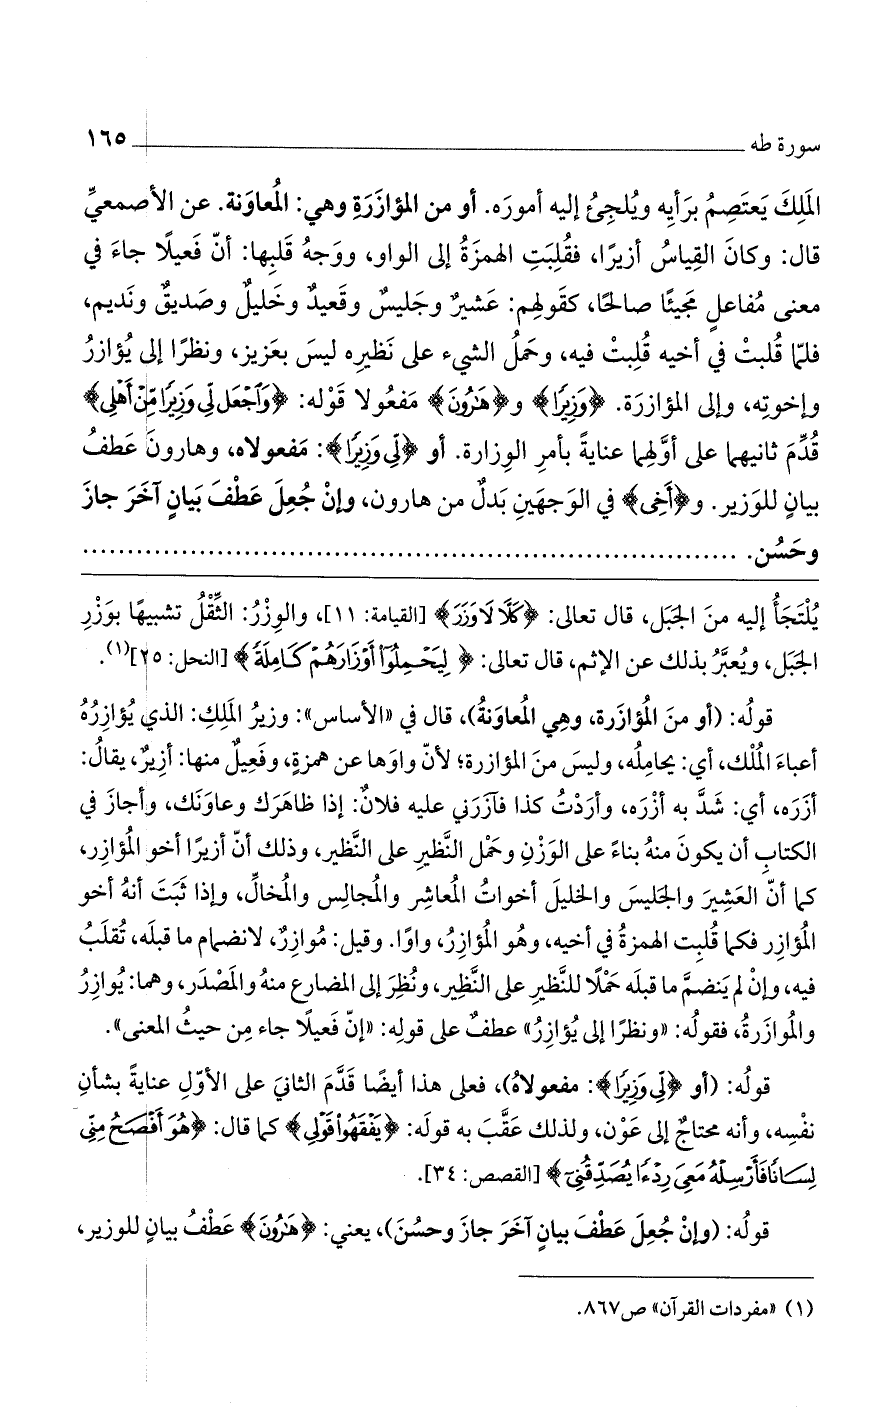 سورة طه ١٦٥
المَلِكَ يَعتَصِمُ برَأيِه ويُلجِئُ إليه أمورَه. أو من المؤازَرَةِ وهي: المُعاوَنة. عن الأصمعيِّ
قال: وكانَ القِياسُ أزيرًا، فقُلِبَتِ الهمزَةُ إلى الواو، ووَجهُ قَلبِها: أنّ فَعيلًا جاءَ في
معنى مُفاعلٍ مجَيئًا صالحًا، كقَولهِم: عَشيرٌ وجَليسٌ وقَعيدٌ وخَليلٌ وصَديقٌ ونَديم،
فلمّا قُلبتْ في أخيه قُلِبتْ فيه، وحَملُ الشيء على نَظيرِه ليسَ بعَزيز، ونظرًا إلى يُؤازرُ
وإخوتِه، وإلى المؤازرَة. ﴿وَزِيرًا﴾ و﴿هَٰرُونَ﴾ مَفعُولا قَوْله: ﴿وَٱجْعَل لِّي وَزِيرًا مِّنْ أَهْلِي﴾
قُدِّمَ ثانيهما على أوَّلِهما عنايةً بأمرِ الوِزارة. أو ﴿لِّي وَزِيرًا﴾: مَفعولاه، وهارونَ عَطفُ
بيانٍ للوَزير. و﴿أَخِي﴾ في الوَجهَينِ بَدلٌ من هارون، وإنْ جُعِلَ عَطْفَ بَيانٍ آخَرَ جازَ
وحَسُن. ........................................................................
يُلْتَجَأُ إليه منَ الجَبَل، قال تعالى: ﴿كَلَّا لَا وَزَرَ﴾ [القيامة: ١١]، والوِزْرُ: الثِّقْلُ تشبيهًا بوَزْرِ
الجَبَل، ويُعبَّرُ بذلك عن الإثم، قال تعالى: ﴿لِيَحْمِلُوٓا۟ أَوْزَارَهُمْ كَامِلَةً﴾ [النحل: ٢٥](١).
قولُه: (أو منَ المُؤازَرة، وهي المُعاوَنةُ)، قال في «الأساس»: وزيرُ المَلِكِ: الذي يُؤازِرُهُ
أعباءَ المُلْك، أي: يحامِلُه، وليسَ منَ المؤازرة؛ لأنّ واوَها عن همزةٍ، وفَعِيلٌ منها: أزِيرٌ، يقالُ:
أزَرَه، أي: شَدَّ به أزْرَه، وأرَدْتُ كذا فآزَرَني عليه فلانٌ: إذا ظاهَرَك وعاوَنَك، وأجازَ في
الكتابِ أن يكونَ منهُ بناءً على الوَزْنِ وحَمْل النَّظيرِ على النَّظير، وذلك أنّ أزيرًا أخو المُؤازِر،
كما أنّ العَشِيرَ والجَليسَ والخليلَ أخواتُ المُعاشِر والمُجالِس والمُخالّ، وإذا ثَبَتَ أنهُ أخو
المُؤازِر فكما قُلِبت الهمزةُ في أخيه، وهو المُؤازِرُ، واوًا. وقيل: مُوازِرٌ، لانضمام ما قبلَه، تُقلَبُ
فيه، وإنْ لم يَنضمَّ ما قبلَه حَمْلًا للنَّظيرِ على النَّظِير، ونُظِرَ إلى المضارع منهُ والمَصْدَر، وهما: يُوازِرُ
والمُوازَرةُ، فقولُه: «ونظرًا إلى يُؤازِرُ» عطفٌ على قولِه: «إنّ فَعيلًا جاء مِن حيثُ المعنى».
قولُه: (أو ﴿لِّي وَزِيرًا﴾: مفعولاهُ)، فعلى هذا أيضًا قَدَّمَ الثانيَ على الأوّلِ عنايةً بشأنِ
نفْسِه، وأنه محتاجٌ إلى عَوْن، ولذلك عَقَّبَ به قولَه: ﴿يَفْقَهُوا۟ قَوْلِي﴾ كما قال: ﴿هُوَ أَفْصَحُ مِنِّي
لِسَانًا فَأَرْسِلْهُ مَعِيَ رِدْءًا يُصَدِّقُنِيٓ﴾ [القصص: ٣٤].
قولُه: (وإنْ جُعِلَ عَطْفَ بيانٍ آخَرَ جازَ وحسُنَ)، يعني: ﴿هَٰرُونَ﴾ عَطْفُ بيانٍ للوزير،
(١) «مفردات القرآن» ص٨٦٧.